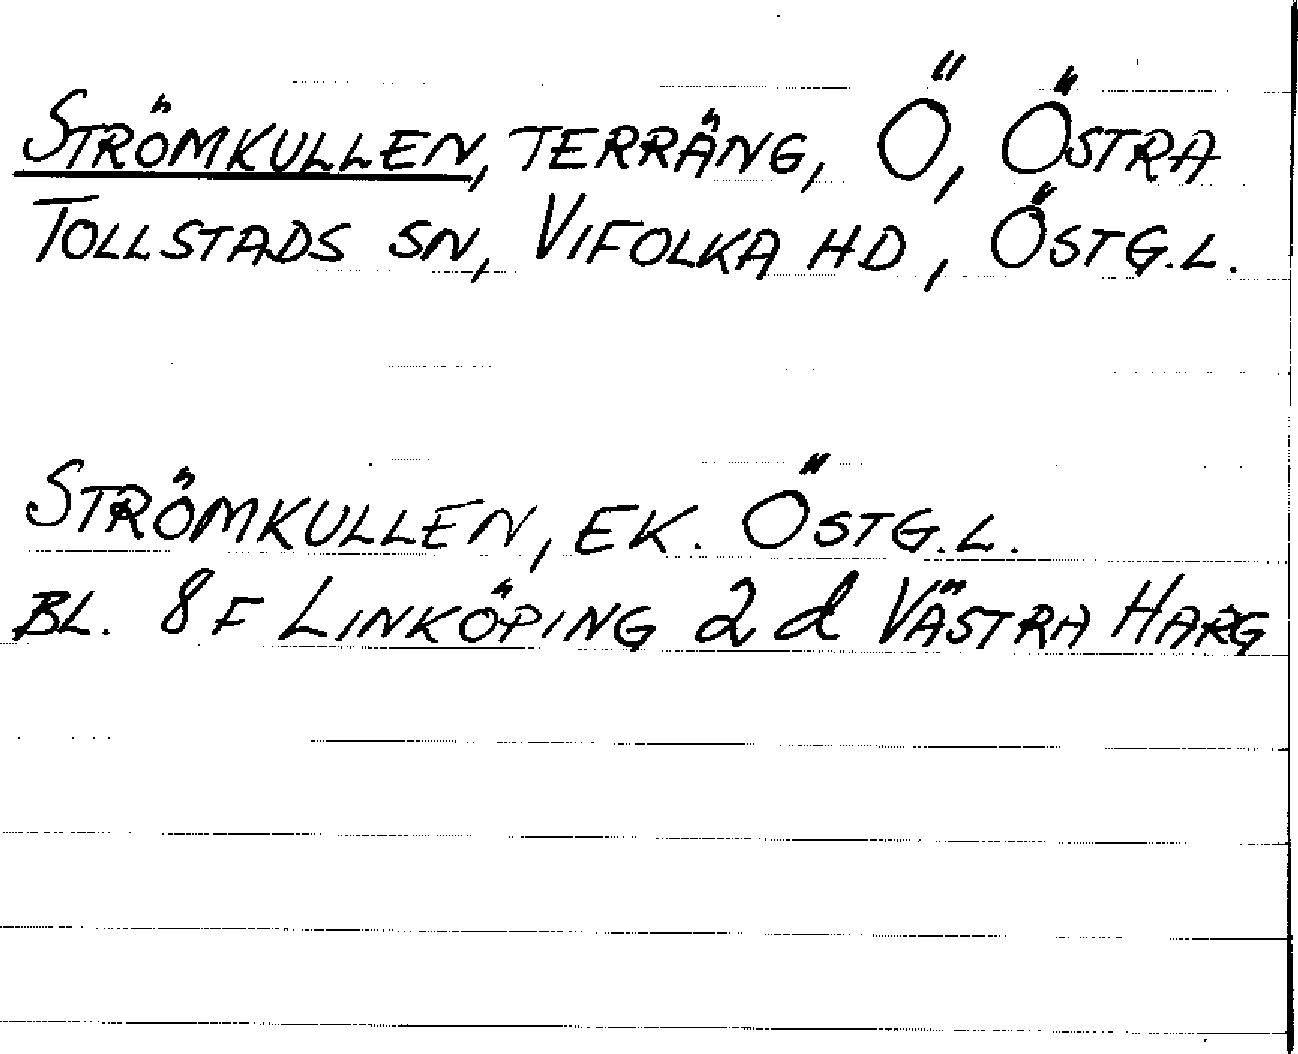 STRÖMKULLEN, TERRÄNG, Ö, ÖSTRA
TOLLSTADS SN, VIFOLKA HD, ÖSTG.L.
STRÖMKULLEN, EK. ÖSTG.L.
BL. 8 F LINKÖPING 2 d VÄSTRA HARG